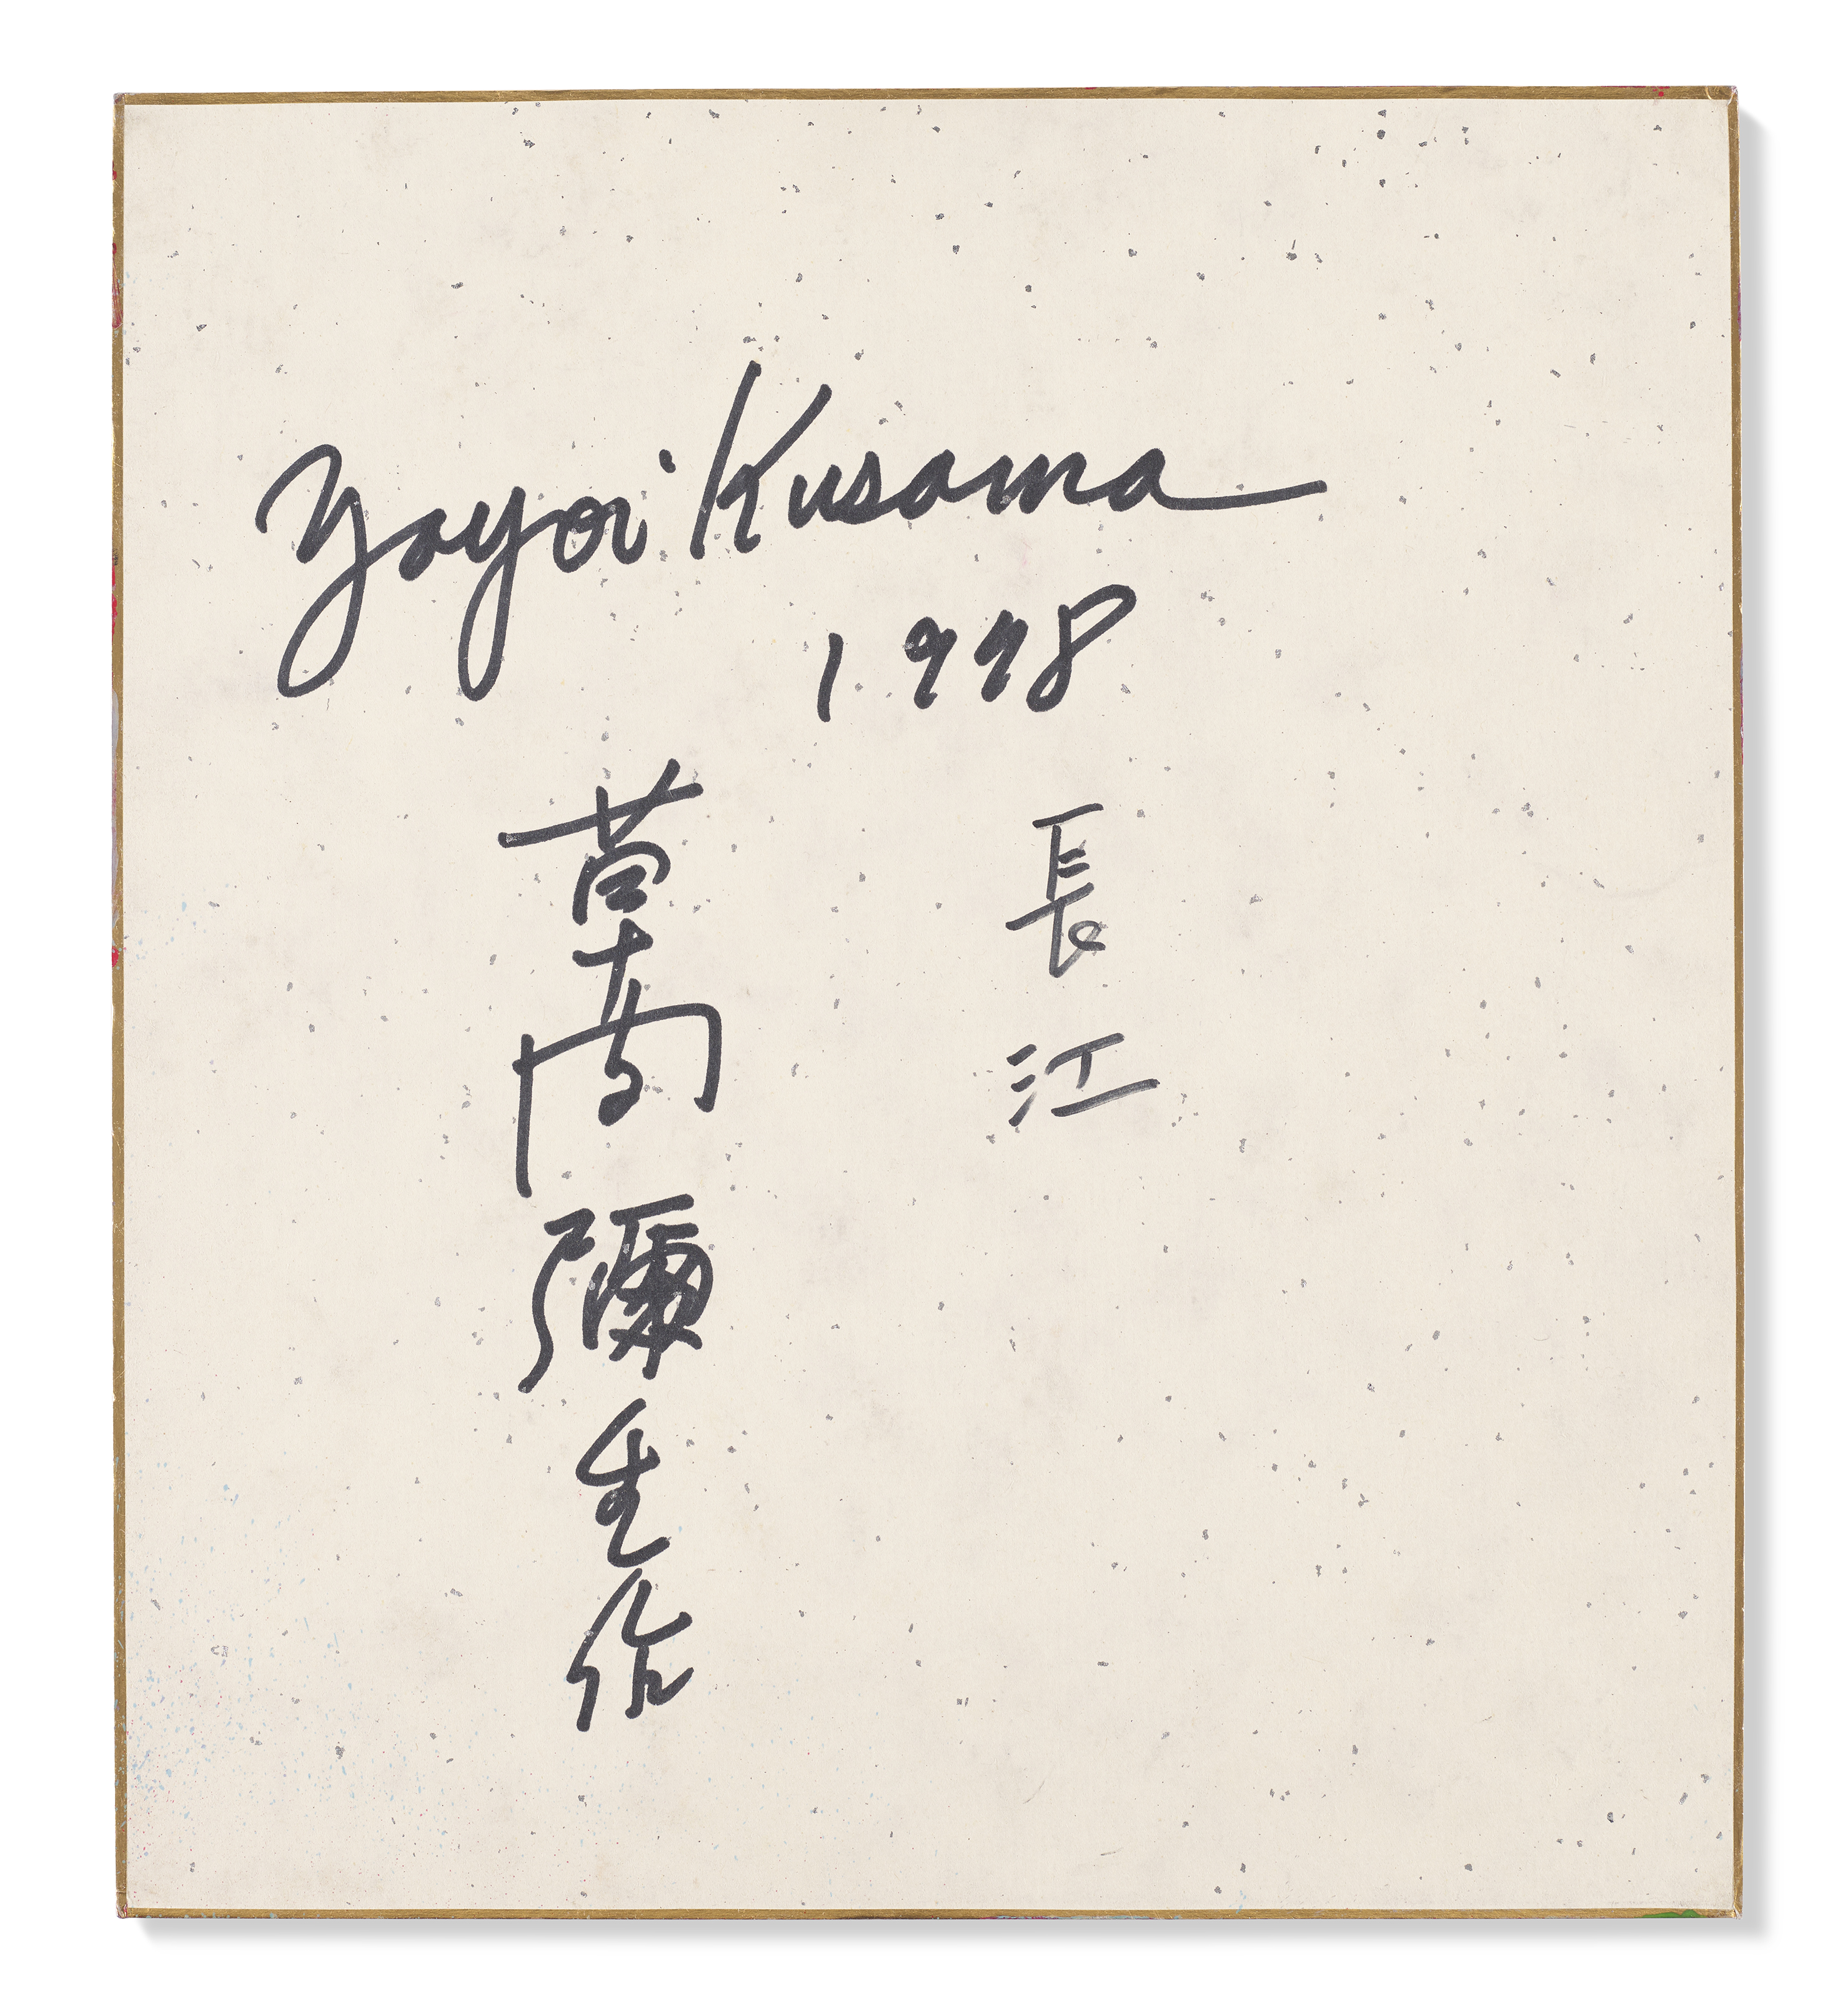 Yayoi Kusama
1998
長江
草間彌生作